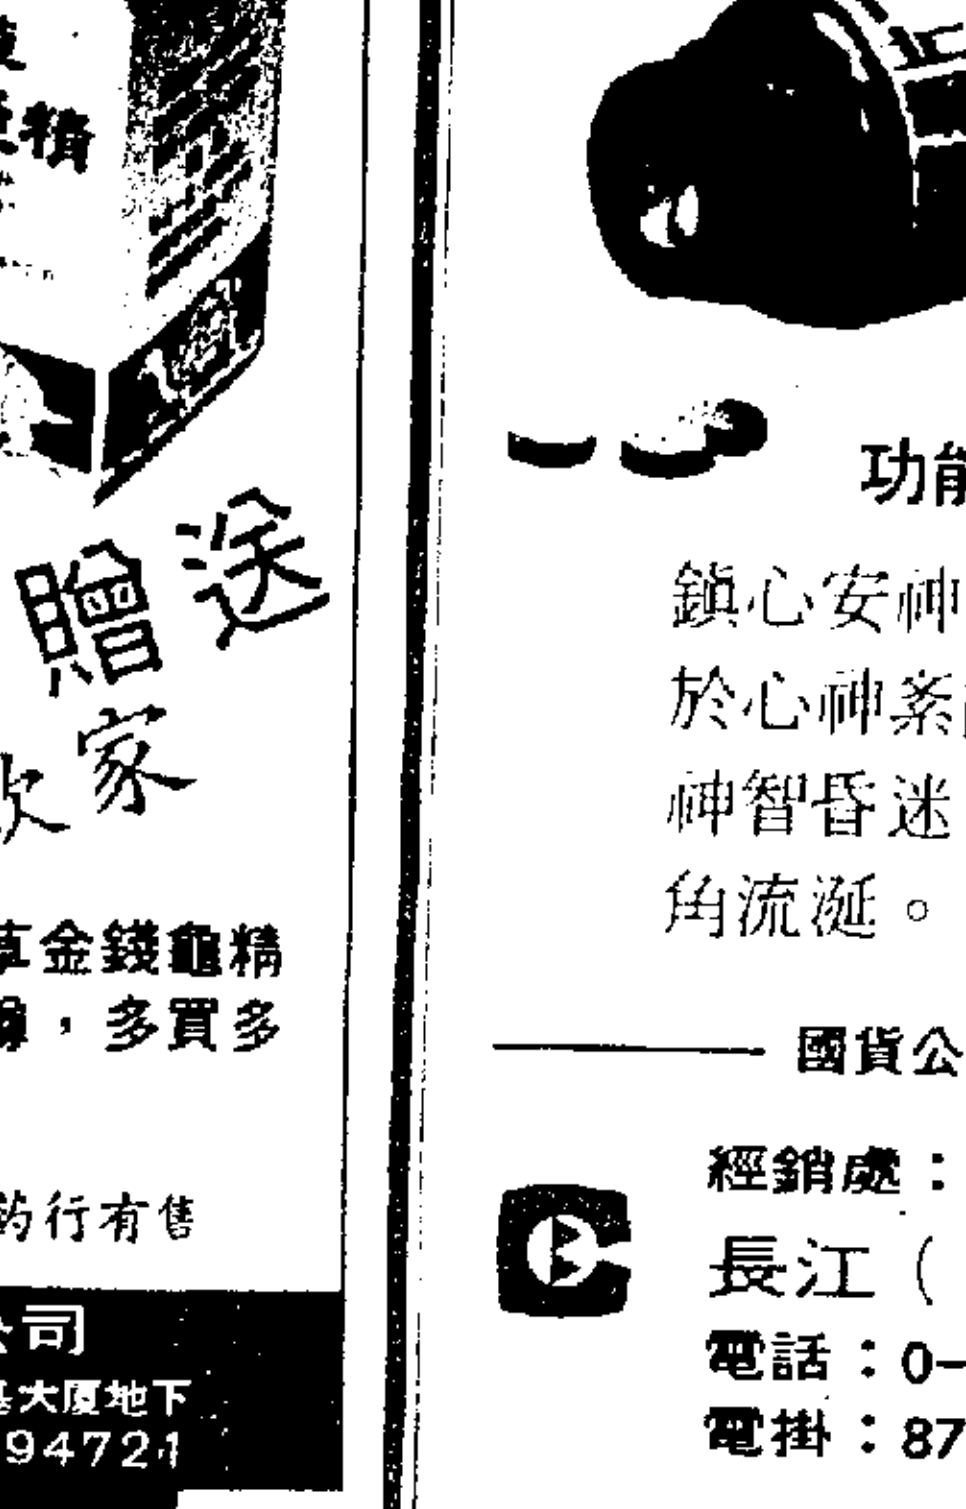 精
送
贈
家
金錢龜精
，多買多
行有售
公司
大厦地下
94721
功能
鎮心安神
於心神紊
神智昏迷
角流涎。
國貨公
經銷處：
長江（
電話：0-
電掛：87